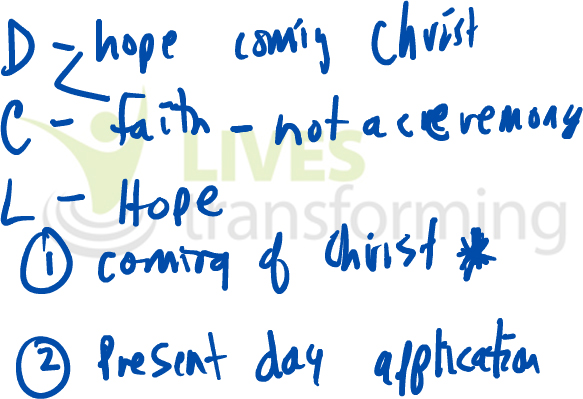 D - hope coming Christ
C - faith - not a ceremony
LIVES
L - Hope
transforming
① coming of Christ *
② Present day application